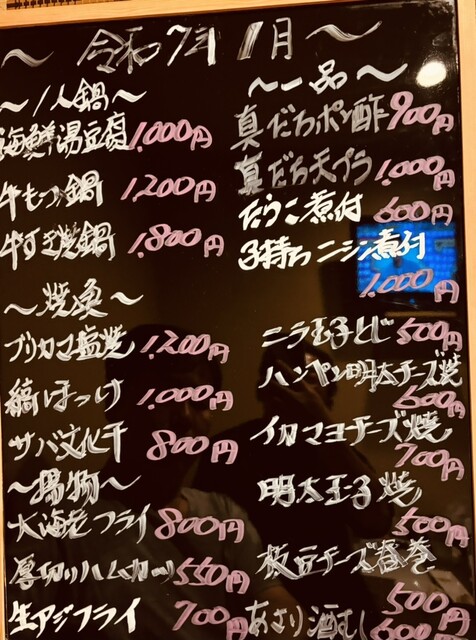 ～令和7年1月～
～1人鍋～
海鮮湯豆腐 1,000円
牛もつ鍋 1,200円
牛すき焼鍋 1,800円
～焼魚～
ブリカマ塩焼 1,200円
縞ほっけ 1,000円
サバ文化干 800円
～揚物～
大海老フライ 800円
厚切りハムカツ 550円
生アジフライ 700円
～一品～
真だちポン酢 900円
真だち天プラ 1,000円
たらこ煮付 600円
子持ちニシン煮付
1,000円
ニラ玉子とじ 500円
ハンペン明太チーズ焼
600円
イカマヨチーズ焼
700円
明太玉子焼
500円
枝豆チーズ春巻
500円
あさり酒むし 600円